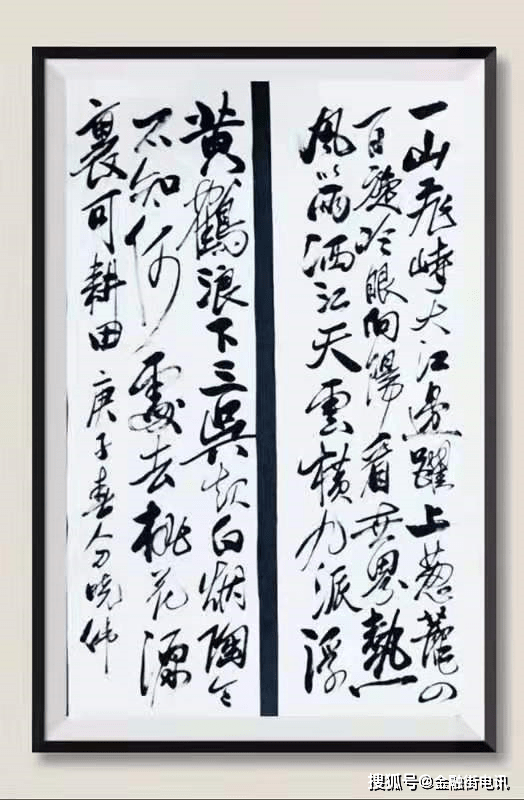 一山飛峙大江邊躍上葱蘢四
百旋冷眼向陽看世界熱
風吹雨洒江天雲横九派浮
黄鶴浪下三吳起白烟陶令
不知何處去桃花源
裏可耕田 庚子春分曉伟
搜狐号@金融街电讯